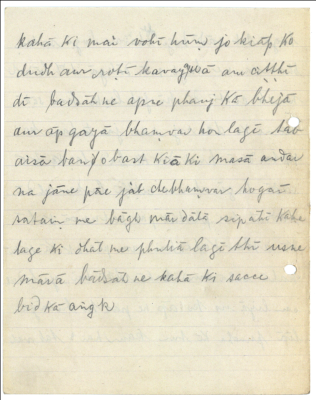 kahā ki maĩ vohī hūṃ jo ki āp ko
dudh aur roṭī karavāy̤ā am aṭṭhī
dī bādśāh ne apne phauj kā bhejā
aur ap gayā bhaṃvar hon lagē tab
aisā bandobast kiā ki masā andar
na jāne pāe jāt de bhaṃvar hogaē
sataiṃ me bāgh mār dālā sipāhī kahe
lage ki dhāt me phuliā lagē thī usne
mārā bādśāh ne kahā ki sacce
bid kā aṅgk